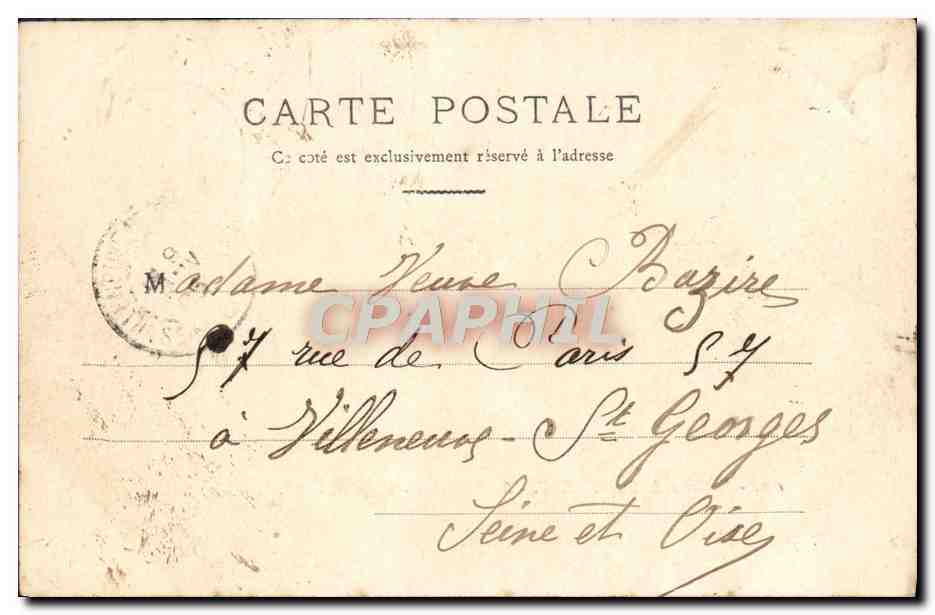 CARTE POSTALE
Ce coté est exclusivement réservé à l'adresse
Madame Veuve Bazire
CPAPHIL
57 rue de Paris 57
à Villeneuve-St Georges
Seine et Oise